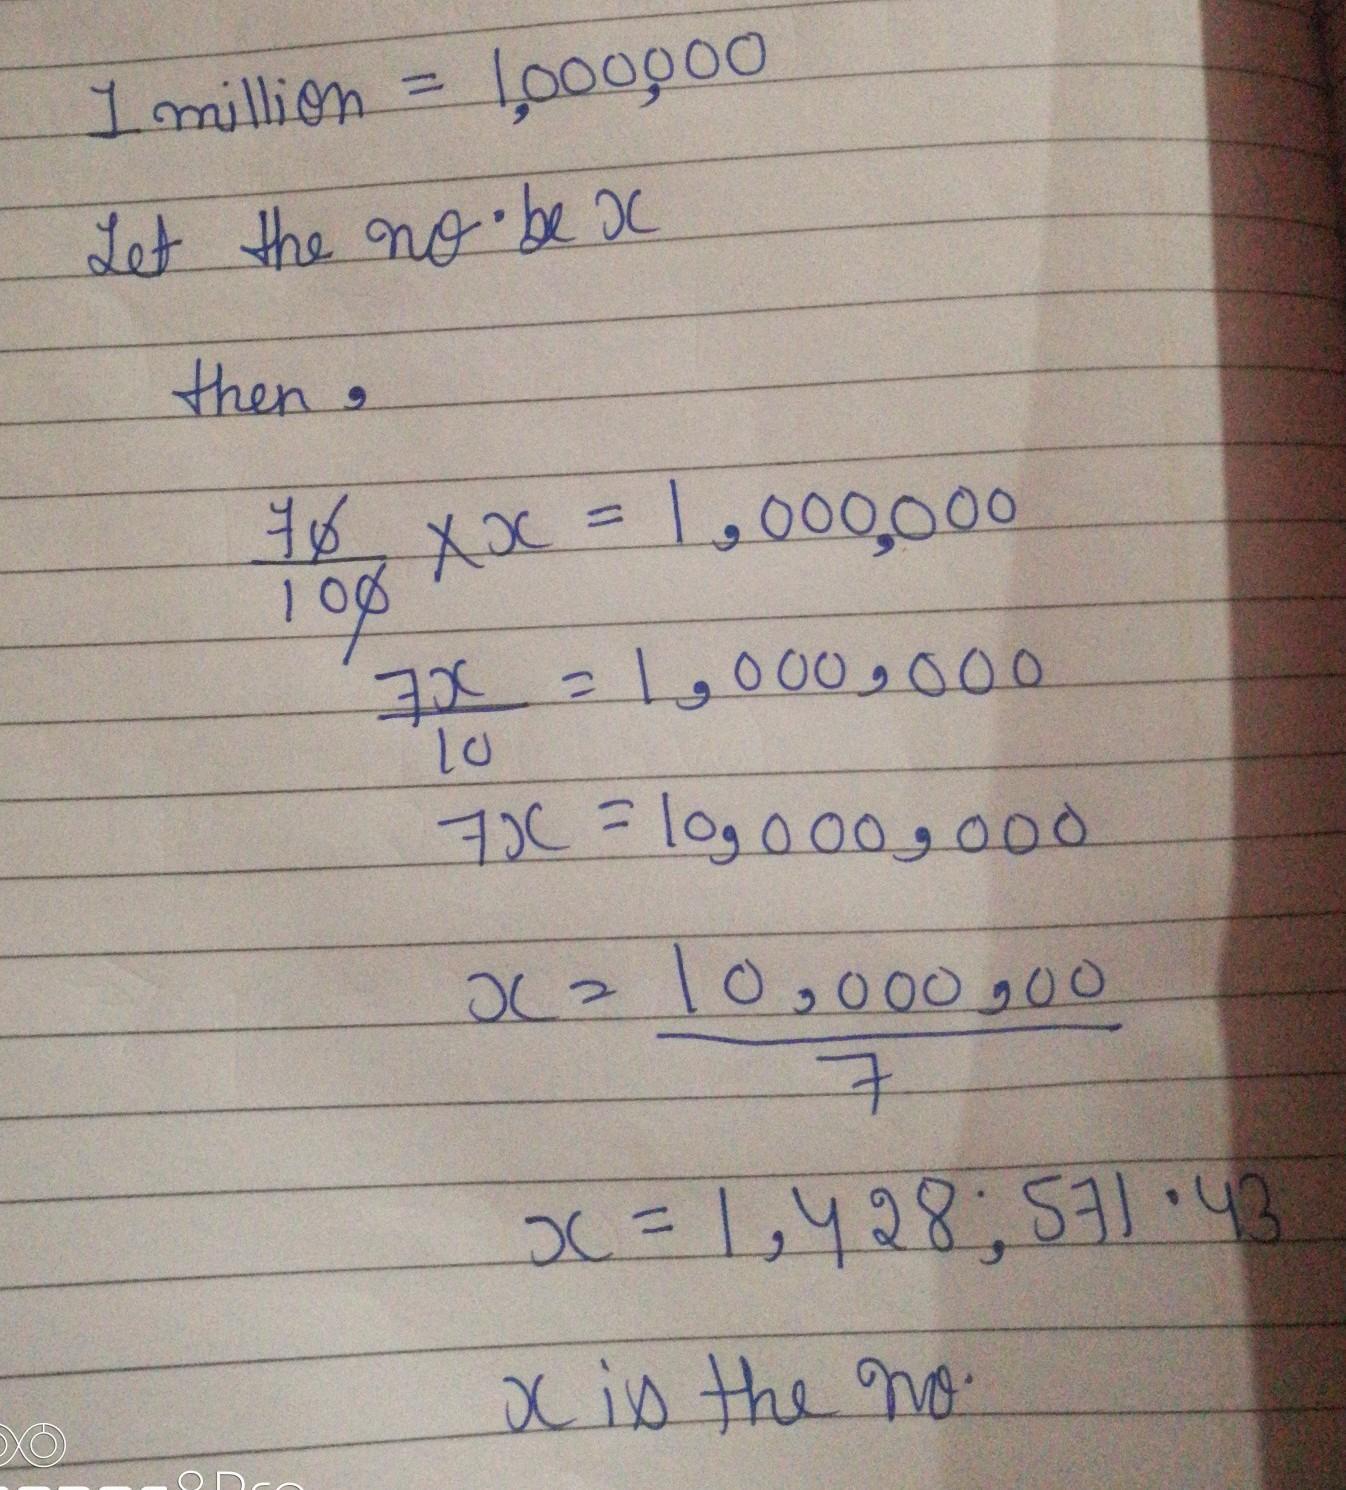 1 million = 1,000,000
Let the no. be x
then,
70/100 × x = 1,000,000
7x/10 = 1,000,000
7x = 10,000,000
x = 10,000,00/7
x = 1,428,571.43
x is the no.